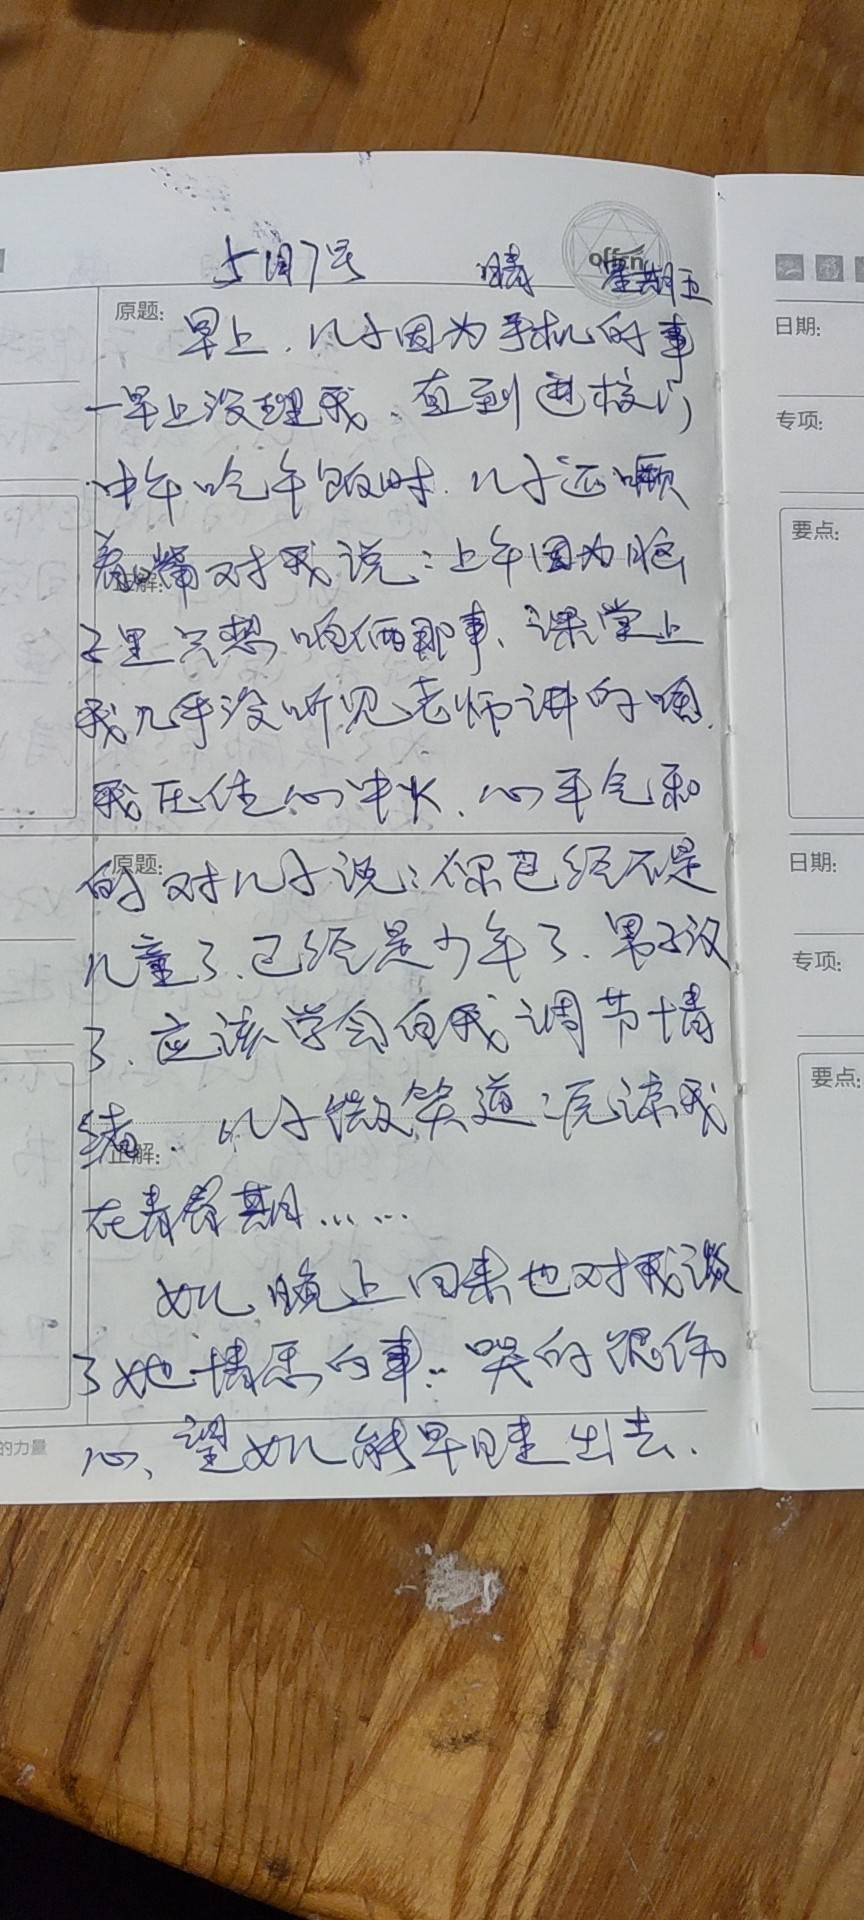 offcn
5月7号 晴 星期五
原题:
日期:
早上、儿子因为手机的事
一早上没理我、直到进校门
专项:
中午吃午饭时、儿子还噘
要点:
着嘴对我说:上午因为脑
正解:
子里只想咱俩那事、课堂上
我几乎没听见老师讲的啥、
我压住心中火、心平气和
原题:
日期:
的对儿子说:你已经不是
儿童了、已经是少年了、男子汉
专项:
了、应该学会自我调节情
要点:
绪、儿子微笑道:原谅我
正解:
在青春期……
女儿晚上回来也对我谈
了她情感的事..哭的很伤
的力量
心、望女儿能早日走出去、